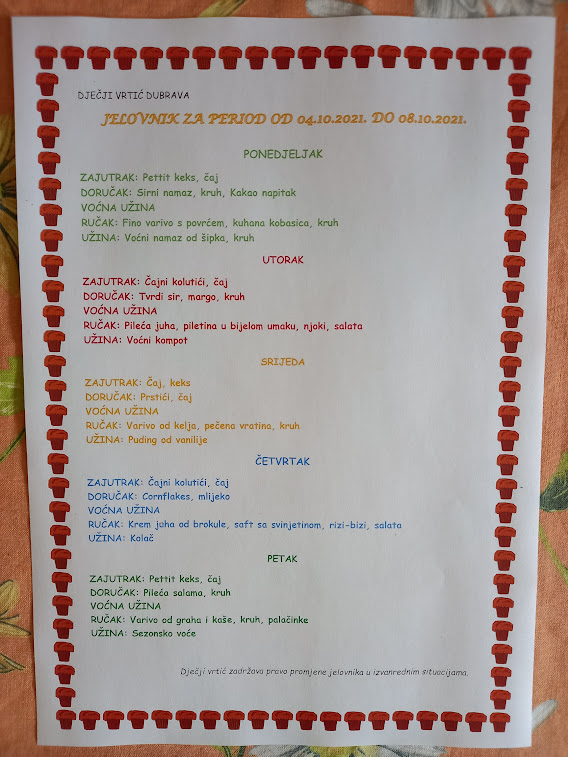 DJEČJI VRTIĆ DUBRAVA
JELOVNIK ZA PERIOD OD 04.10.2021. DO 08.10.2021.
PONEDJELJAK
ZAJUTRAK: Pettit keks, čaj
DORUČAK: Sirni namaz, kruh, Kakao napitak
VOĆNA UŽINA
RUČAK: Fino varivo s povrćem, kuhana kobasica, kruh
UŽINA: Voćni namaz od šipka, kruh
UTORAK
ZAJUTRAK: Čajni kolutići, čaj
DORUČAK: Tvrdi sir, margo, kruh
VOĆNA UŽINA
RUČAK: Pileća juha, piletina u bijelom umaku, njoki, salata
UŽINA: Voćni kompot
SRIJEDA
ZAJUTRAK: Čaj, keks
DORUČAK: Prstići, čaj
VOĆNA UŽINA
RUČAK: Varivo od kelja, pečena vratina, kruh
UŽINA: Puding od vanilije
ČETVRTAK
ZAJUTRAK: Čajni kolutići, čaj
DORUČAK: Cornflakes, mlijeko
VOĆNA UŽINA
RUČAK: Krem juha od brokule, saft sa svinjetinom, rizi-bizi, salata
UŽINA: Kolač
PETAK
ZAJUTRAK: Pettit keks, čaj
DORUČAK: Pileća salama, kruh
VOĆNA UŽINA
RUČAK: Varivo od graha i kaše, kruh, palačinke
UŽINA: Sezonsko voće
Dječji vrtić zadržava pravo promjene jelovnika u izvanrednim situacijama.